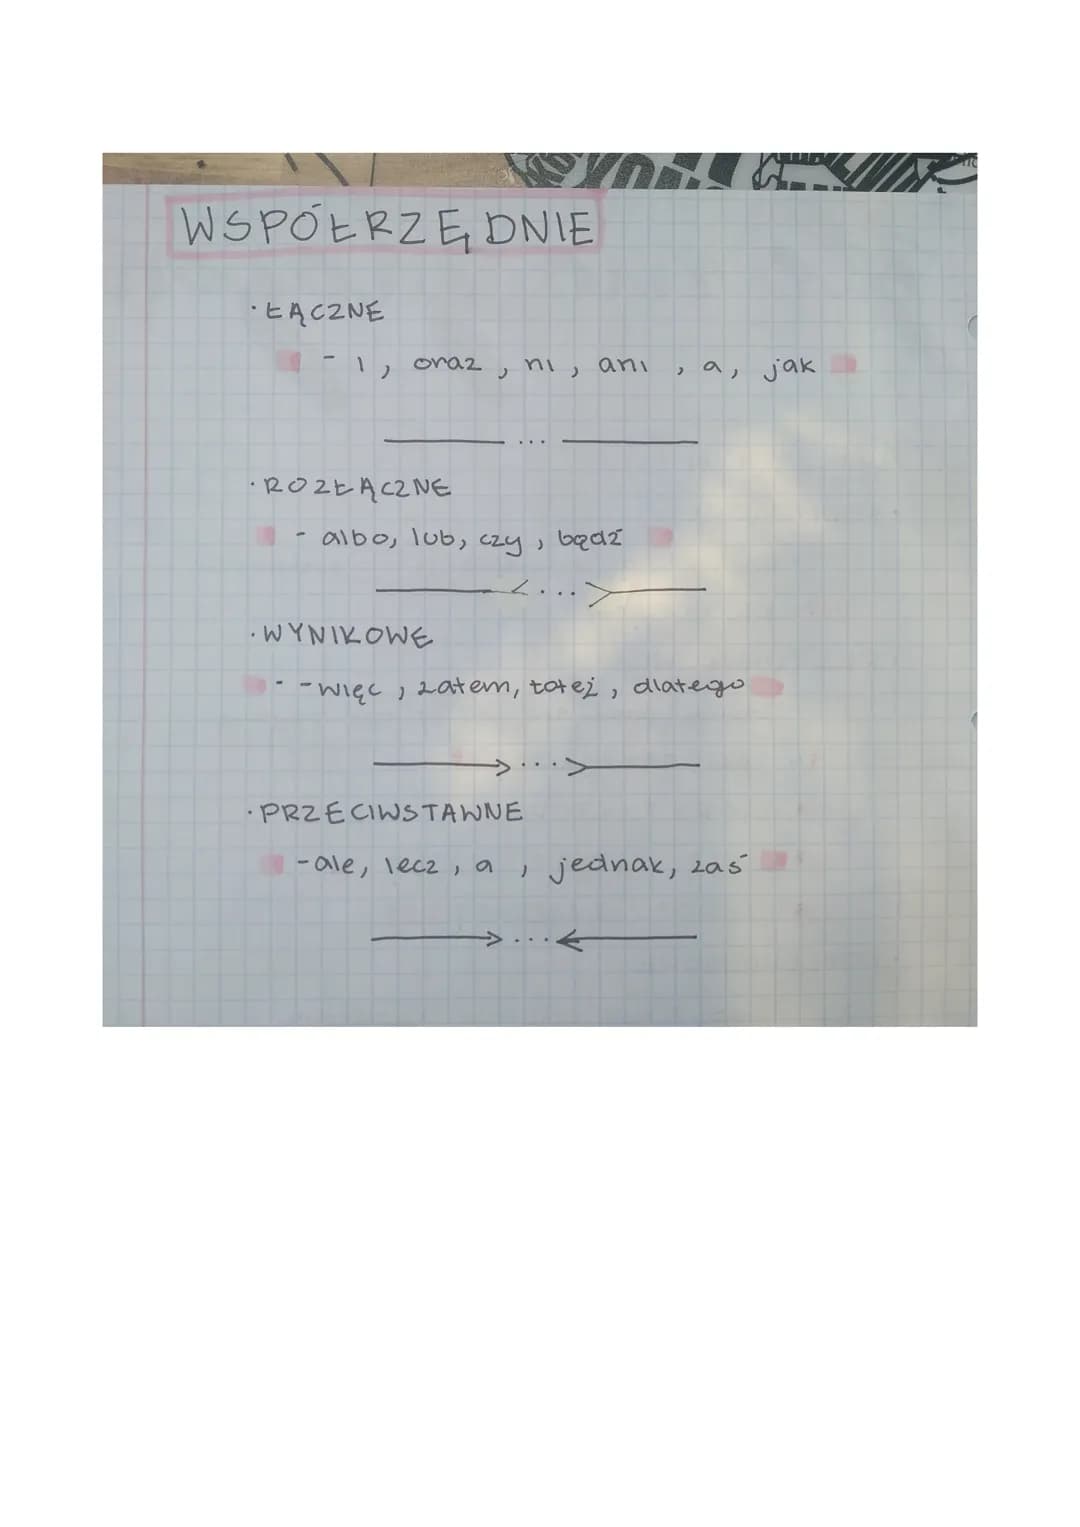 WSPÓŁRZĘDNIE
· ŁĄCZNE
- i, oraz, ni, ani, a, jak
___ ... ___
· ROZŁĄCZNE
- albo, lub, czy, bądź
___< ... >___
· WYNIKOWE
- - więc, zatem, toteż, dlatego
___> ... >___
· PRZECIWSTAWNE
- ale, lecz, a, jednak, zaś
___> ... <___